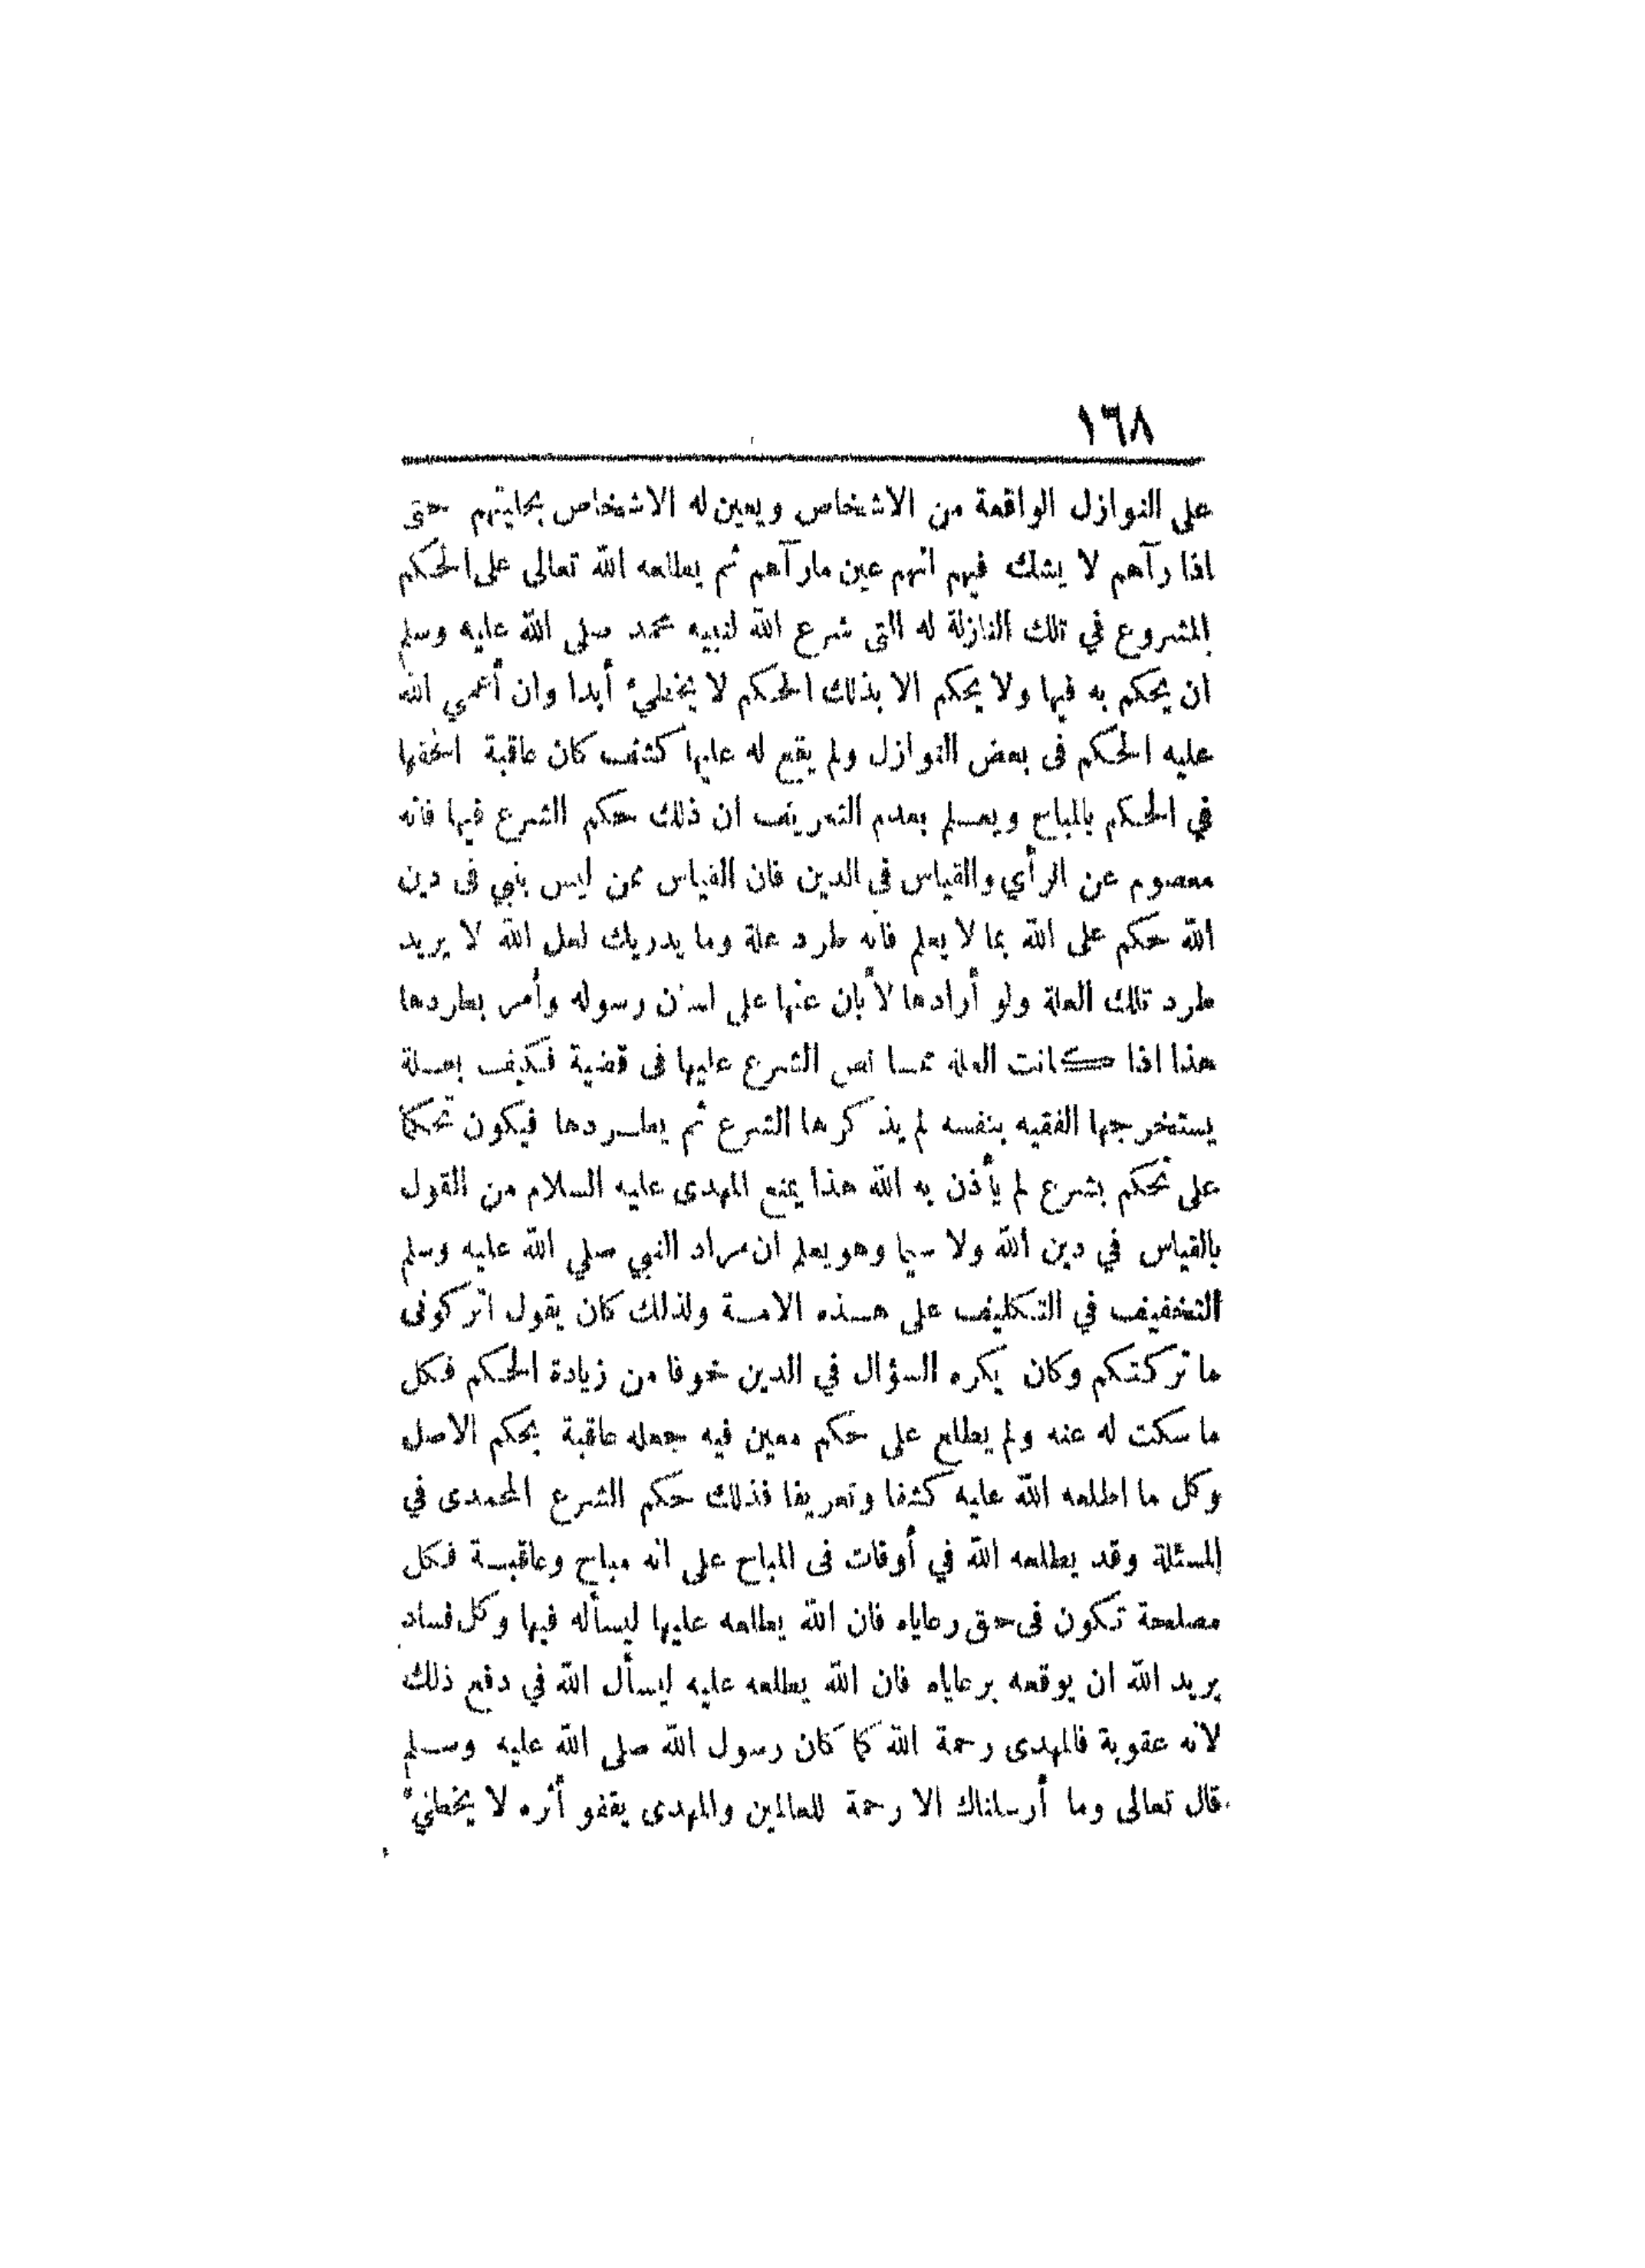 ١٦٨
على النوازل الواقعة من الاشخاص ويعين له الاشخاص بحليتهم حتى
اذا رآهم لا يشك فيهم انهم عين مارآهم ثم يطلعه الله تعالى على الحكم
المشروع في تلك النازلة له التى شرع الله لنبيه محمد صلى الله عليه وسلم
ان يحكم به فيها ولا يحكم الا بذلك الحكم لا يخطىء أبدا وان أعمي الله
عليه الحكم فى بعض النوازل ولم يقع له عليها كشف كان عاقبة
في الحكم بالمباح ويعلم بعدم التعريف ان ذلك حكم الشرع فيها فانه
معصوم عن الرأي والقياس في الدين فان القياس ممن ليس بنبي فى دين
الله حكم على الله بما لا يعلم فانه طرد علة وما يدريك لعل الله لا يريد
طرد تلك العلة ولو أرادها لأبان عنها على لسان رسوله وأمر بطردها
هذا اذا كانت العلة مما نص الشرع عليها فى قضية فكيف بعلة
يستخرجها الفقيه بنفسه لم يذكرها الشرع ثم يطردها فيكون تحكما
على تحكم بشرع لم يأذن به الله هذا يمنع المهدى عليه السلام من القول
بالقياس في دين الله ولا سيما وهو يعلم ان مراد النبي صلي الله عليه وسلم
التخفيف في التكليف على هذه الامة ولذلك كان يقول اتركونى
ما تركتكم وكان يكره السؤال في الدين خوفا من زيادة الحكم فكل
ما سكت له عنه ولم يطلع على حكم معين فيه جعله عاقبة بحكم الاصل
وكل ما اطلعه الله عليه كشفا وتعريفا فذلك حكم الشرع المحمدى في
المسئلة وقد يطلعه الله في أوقات فى المباح على انه مباح وعاقبة فكل
مصلحة تكون فى حق رعاياه فان الله يطلعه عليها ليسأله فيها وكل فساد
يريد الله ان يوقعه برعاياه فان الله يطلعه عليه ليسأل الله في دفع ذلك
لانه عقوبة فالمهدى رحمة الله كما كان رسول الله صلى الله عليه وسلم
قال تعالى وما أرسلناك الا رحمة للعالمين والمهدى يقفو أثره لا يخطىء